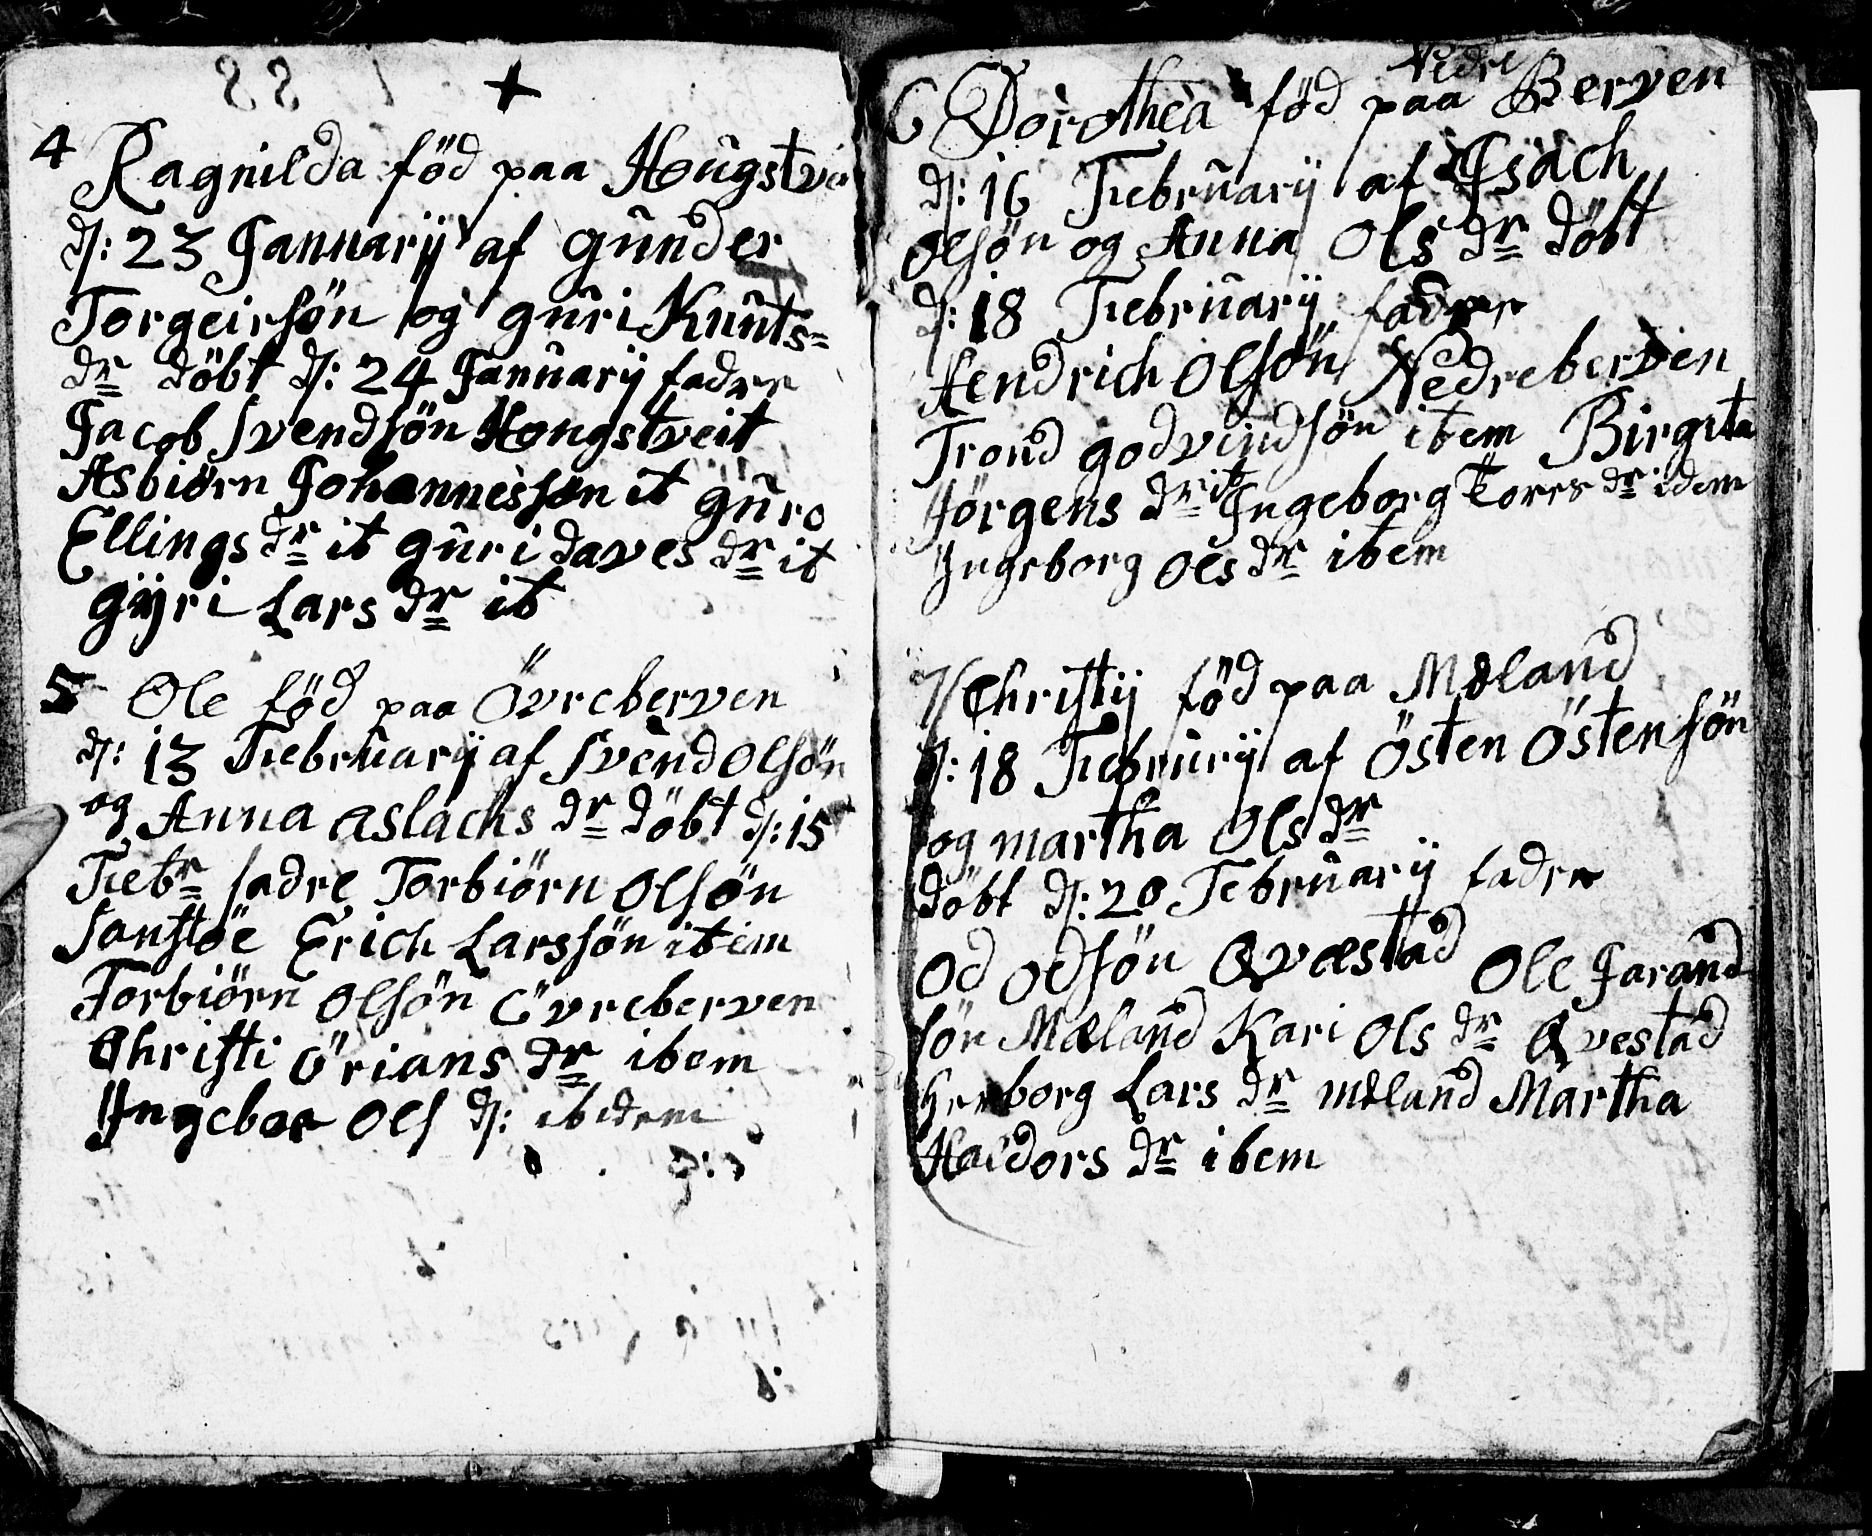 88
4 Ragnilda föd paa Hougstve
d: 23 Januarij af gunder
Torgeirsön og guri Knuts=
dr döbt d: 24 Januarij fadre
Jacob Svendsön Hongstveit
Asbiörn Johannesson it guro
Ellings dr it guri daves dr it
gyri Lars dr it
5 Ole föd paa Övreberven
d: 13 Febru­arij af Svend Olsön
og Anna aslachs dr döbt d: 15
Febr fadre Torbiörn Olsön
Sanstöe Erich Larssön item
Torbiörn Olsön Övreberven
Christi Örians dr ibem
Ingebor Ols d: ibidem
Nedre
6 Dorothea föd paa Berven
d: 16 Februarij af Isach
Olsön og Anna Ols dr döbt
d: 18 Februarij fadre
Hendrich Olsön Nedreberven
Trond godvindsön item Birgita
Jörgens dr it Ingeborg Tores dr idem
Ingeborg Ols dr ibem
7 Christij föd paa Mæland
d: 18 Februrij af Östen Östensön
og martha Ols dr
döbt d: 20 Februarij fadre
Od Odsön Qvæstad Ole Jarand
sön Mæland Kari Ols dr Qvestad
Herborg Lars dr mæland Martha
Haldors dr ibem